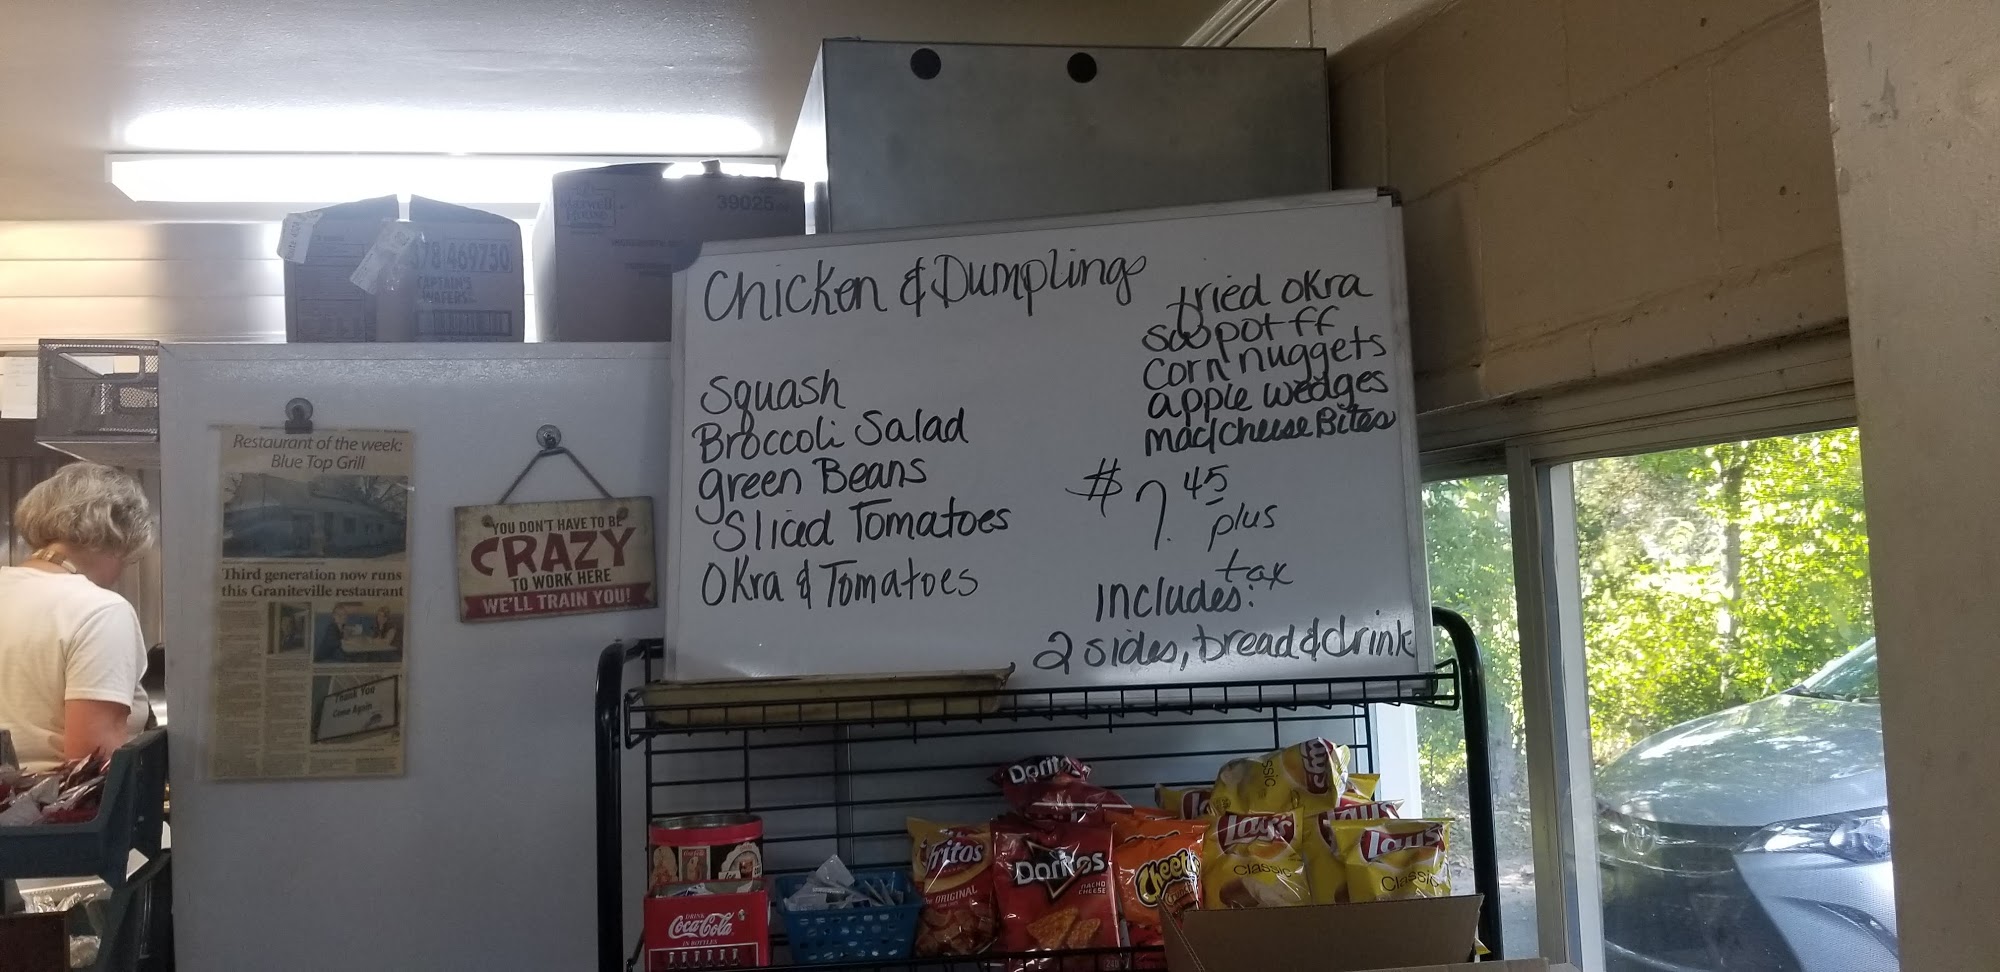 Chicken & Dumplings
Squash
Broccoli Salad
green Beans
Sliced Tomatoes
Okra & Tomatoes
fried okra
sw pot ff
corn nuggets
apple wedges
mac/cheese Bites
$7.45
plus
tax
includes:
2 sides, bread & drink
39025
469750
CAPTAIN'S
WAFERS
Restaurant of the week:
Blue Top Grill
Third generation now runs
this Graniteville restaurant
Thank You
Come Again
YOU DON'T HAVE TO BE
CRAZY
TO WORK HERE
WE'LL TRAIN YOU!
Doritos
Lay's
Classic
Fritos
ORIGINAL
Doritos
NACHO
CHEESE
Cheetos
Lay's
Classic
Lay's
Classic
DRINK
Coca-Cola
IN BOTTLES